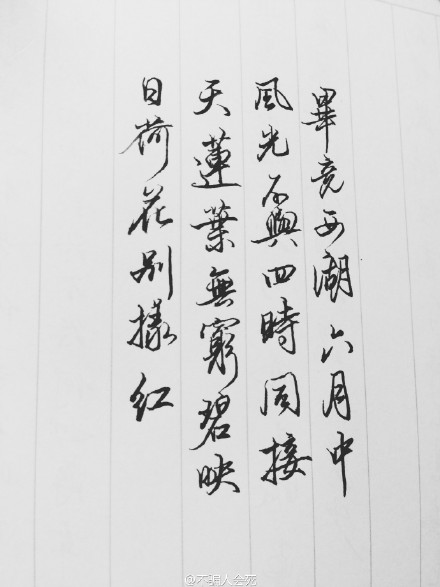 畢竟西湖六月中
風光不與四時同接
天蓮葉無窮碧映
日荷花别樣紅
@不骗人会死